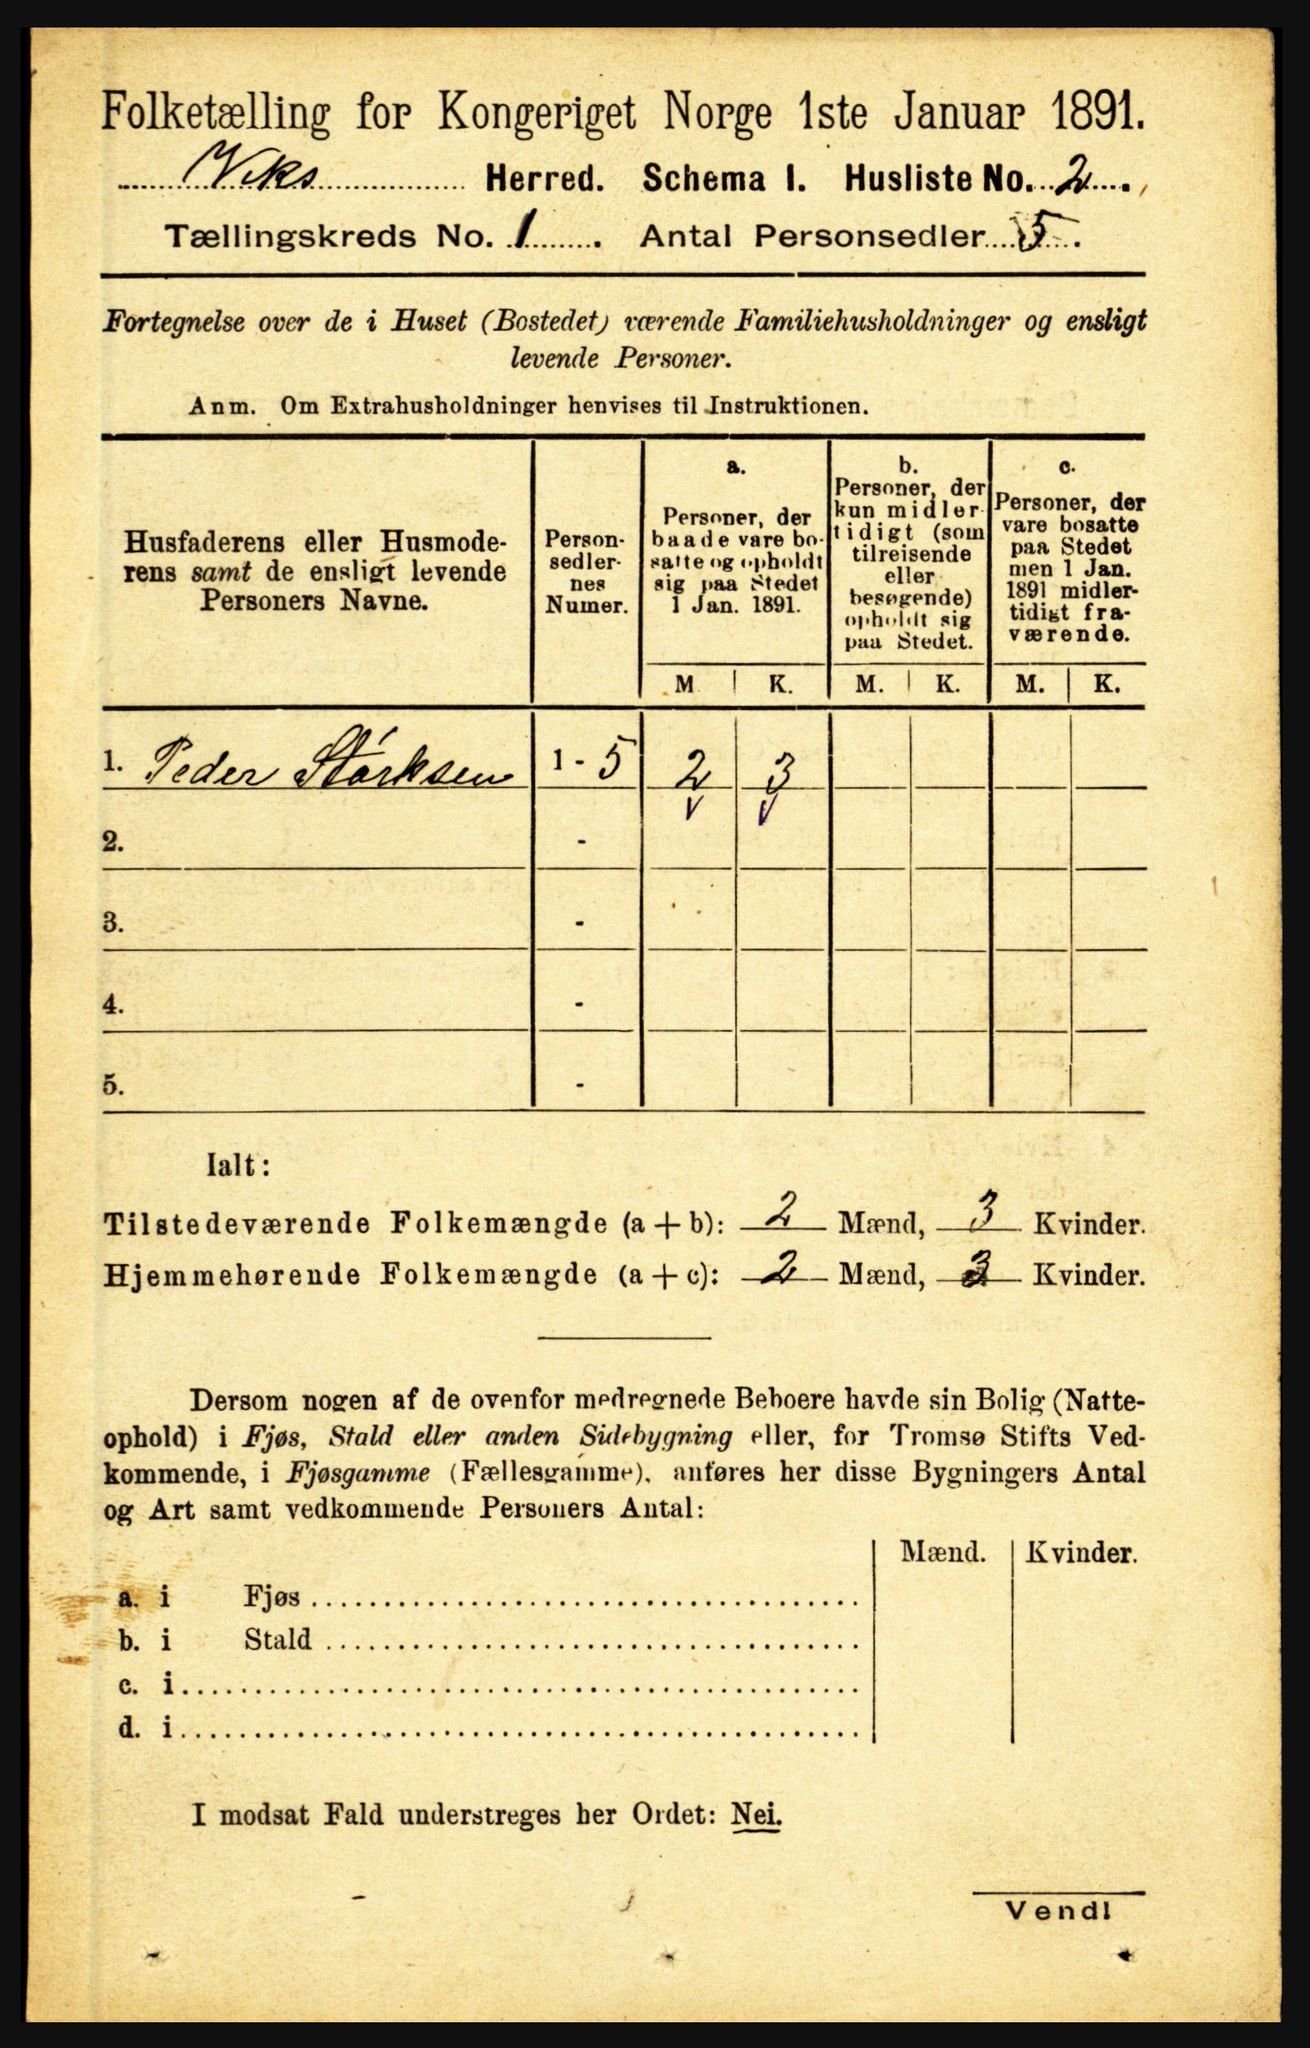 Folketælling for Kongeriget Norge 1ste Januar 1891.
Viks Herred. Schema I. Husliste No. 2.
Tællingskreds No. 1. Antal Personsedler 5.
Fortegnelse over de i Huset (Bostedet) værende Familiehusholdninger og ensligt
levende Personer.
Anm. Om Extrahusholdninger henvises til Instruktionen.
Husfaderens eller Husmode-
rens samt de ensligt levende
Personers Navne.
Person-
sedler-
nes
Numer.
a.
Personer, der
baade vare bo-
satte og opholdt
sig paa Stedet
1 Jan. 1891.
b.
Personer, der
kun midler-
tidigt (som
tilreisende
eller
besøgende)
opholdt sig
paa Stedet.
c.
Personer, der
vare bosatte
paa Stedet
men 1 Jan.
1891 midler-
tidigt fra-
værende.
M K. M. K. M. K.
1. Peder Størksen 1 - 5 2 3
2. -
3. -
4. -
5. -
Ialt:
Tilstedeværende Folkemængde (a + b): 2 Mænd, 3 Kvinder.
Hjemmehørende Folkemængde (a + c): 2 Mænd, 3 Kvinder.
Dersom nogen af de ovenfor medregnede Beboere havde sin Bolig (Natte-
ophold) i Fjøs, Stald eller anden Sidebygning eller, for Tromsø Stifts Ved-
kommende, i Fjøsgamme (Fællesgamme), anføres her disse Bygningers Antal
og Art samt vedkommende Personers Antal:
Mænd. Kvinder.
a. i Fjøs
b. i Stald
c. i
d. i
I modsat Fald understreges her Ordet: Nei.
Vend!